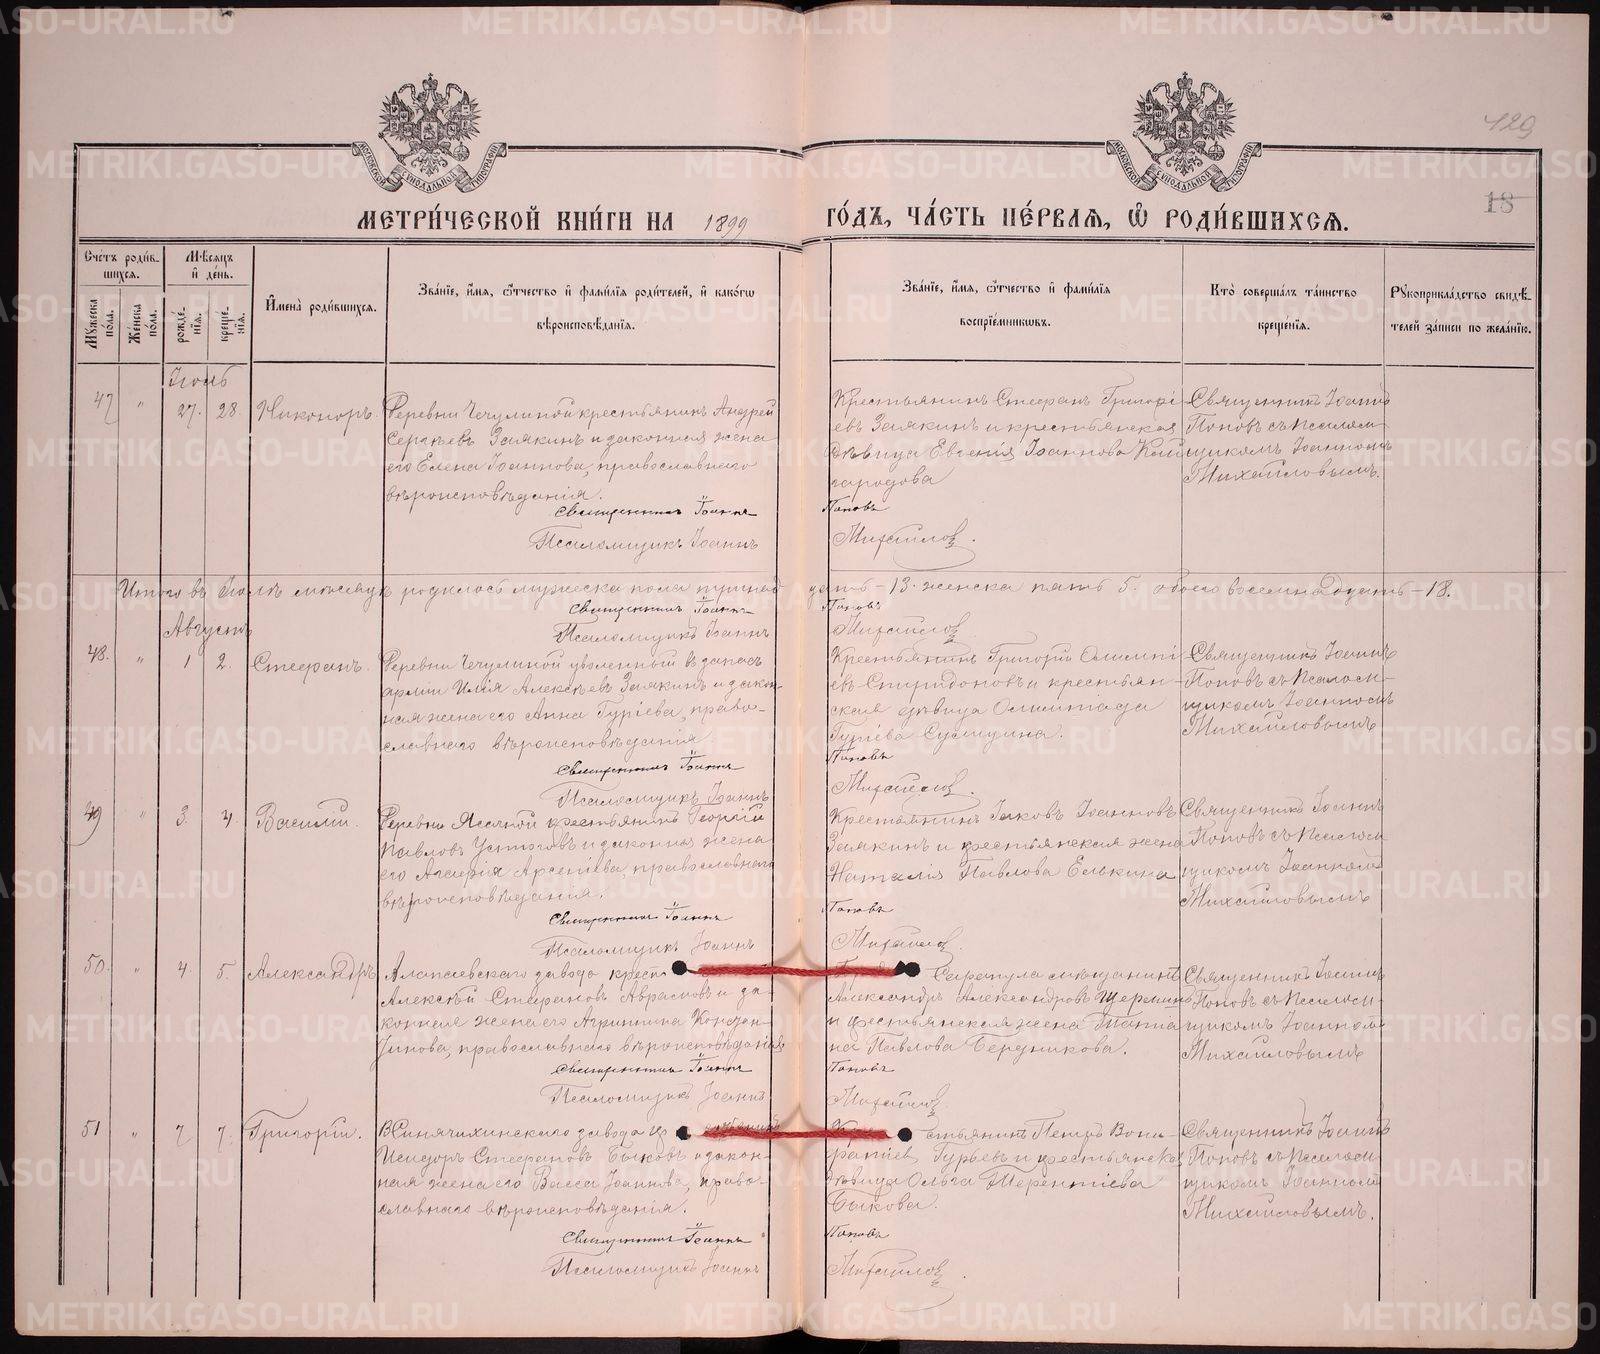 129
18
МЕТРИ́ЧЕСКОЙ КНИ́ГИ НА 1899 ГО́ДЪ, ЧА́СТЬ ПЕ́РВАЯ, Ѽ РОДИ́ВШИХСЯ.
Сче́тъ роди́в-
шихся.
Му́жеска пола.
Же́нска пола.
Мѣсяцъ
и҆ де́нь.
рожде́-
нїя.
креще́-
нїя.
И҆мена̀ роди́вшихся.
Зва́нїе, и҆́мя, ѻ҆́тчество и҆ фами́лїя роди́телей, и҆ како́гѡ
вѣроисповѣ́данїя.
Зва́нїе, и҆́мя, ѻ҆́тчество и҆ фами́лїя
воспрїе́мниковъ.
Кто̀ соверша́лъ та́инство
креще́нїя.
Рꙋкоприкла́дство свидѣ́-
телей за́писи по жела́нїю.
Іюль
47 " 27. 28. Никоноръ.
Деревни Чечулиной крестьянинъ Андрей
Сергѣевъ Заякинъ и законная жена
его Елена Іоаннова, православнаго
вѣроисповѣданія.
Священникъ Іоаннъ
Псаломщикъ Іоаннъ
Крестьянинъ Стефанъ Григорі-
евъ Заякинъ и крестьянская
дѣвица Евгенія Іоаннова Кай-
городова
Поповъ
Михайловъ.
Священникъ Іоаннъ
Поповъ съ Псалом-
щикомъ Іоанномъ
Михайловымъ.
Итого въ Іюлѣ мѣсяцѣ родилось мужеска пола тринад цать - 13. женска пять 5. обоего восемнадцать - 18.
Священникъ Іоаннъ Поповъ
Псаломщикъ Іоаннъ Михайловъ
Августъ
48. " 1 2. Стефанъ.
Деревни Чечулиной уволенный въ запасъ
арміи Илія Алексѣевъ Заякинъ и закон-
ная жена его Анна Гуріева, право-
славнаго вѣроисповѣданія
Священникъ Іоаннъ
Псаломщикъ Іоаннъ
Крестьянинъ Григорій Олимпі-
евъ Спиридоновъ и крестьян-
ская дѣвица Олимпіада
Гуріева
Поповъ
Михайловъ.
Священникъ Іоаннъ
Поповъ съ Псалом-
щикомъ Іоанномъ
Михайловымъ
49 " 3. 4. Василій.
Деревни Ясашной крестьянинъ Георгій
Павловъ и законная жена
его Арсеніева, православнаго
вѣроисповѣданія.
Священникъ Іоаннъ
Псаломщикъ Іоаннъ
Крестьянинъ Іаковъ Іоанновъ
Заякинъ и крестьянская жена
Наталія Павлова Елькина
Поповъ
Михайловъ.
Священникъ Іоаннъ
Поповъ съ Псалом-
щикомъ Іоанномъ
Михайловымъ
50. " 4. 5. Александръ
Алапаевскаго завода крест
Алексѣй Стефановъ и за-
конная жена его Агриппина Констан-
тинова, православнаго вѣроисповѣданія
Священникъ Іоаннъ
Псаломщикъ Іоаннъ
Сарапула мѣщанинъ
Александръ Александровъ
и крестьянская жена Татіа-
на Павлова Бердникова.
Поповъ
Михайловъ
Священникъ Іоаннъ
Поповъ съ Псалом-
щикомъ Іоанномъ
Михайловымъ
51 " 7 7. Григорій.
В Синячихинскаго завода
Исидоръ Стефановъ Быковъ и закон-
ная жена его Васса Іоаннова, право-
славнаго вѣроисповѣданія.
Священникъ Іоаннъ
Псаломщикъ Іоаннъ
Крестьянинъ Петръ Вони-
фатіев Гурьевъ и крестьянск
дѣвица Ольга Терентіева
Быкова.
Поповъ
Михайловъ.
Священникъ Іоаннъ
Поповъ съ Псалом-
щикомъ Іоанномъ
Михайловымъ.
METRIKI.GASO-URAL.RU